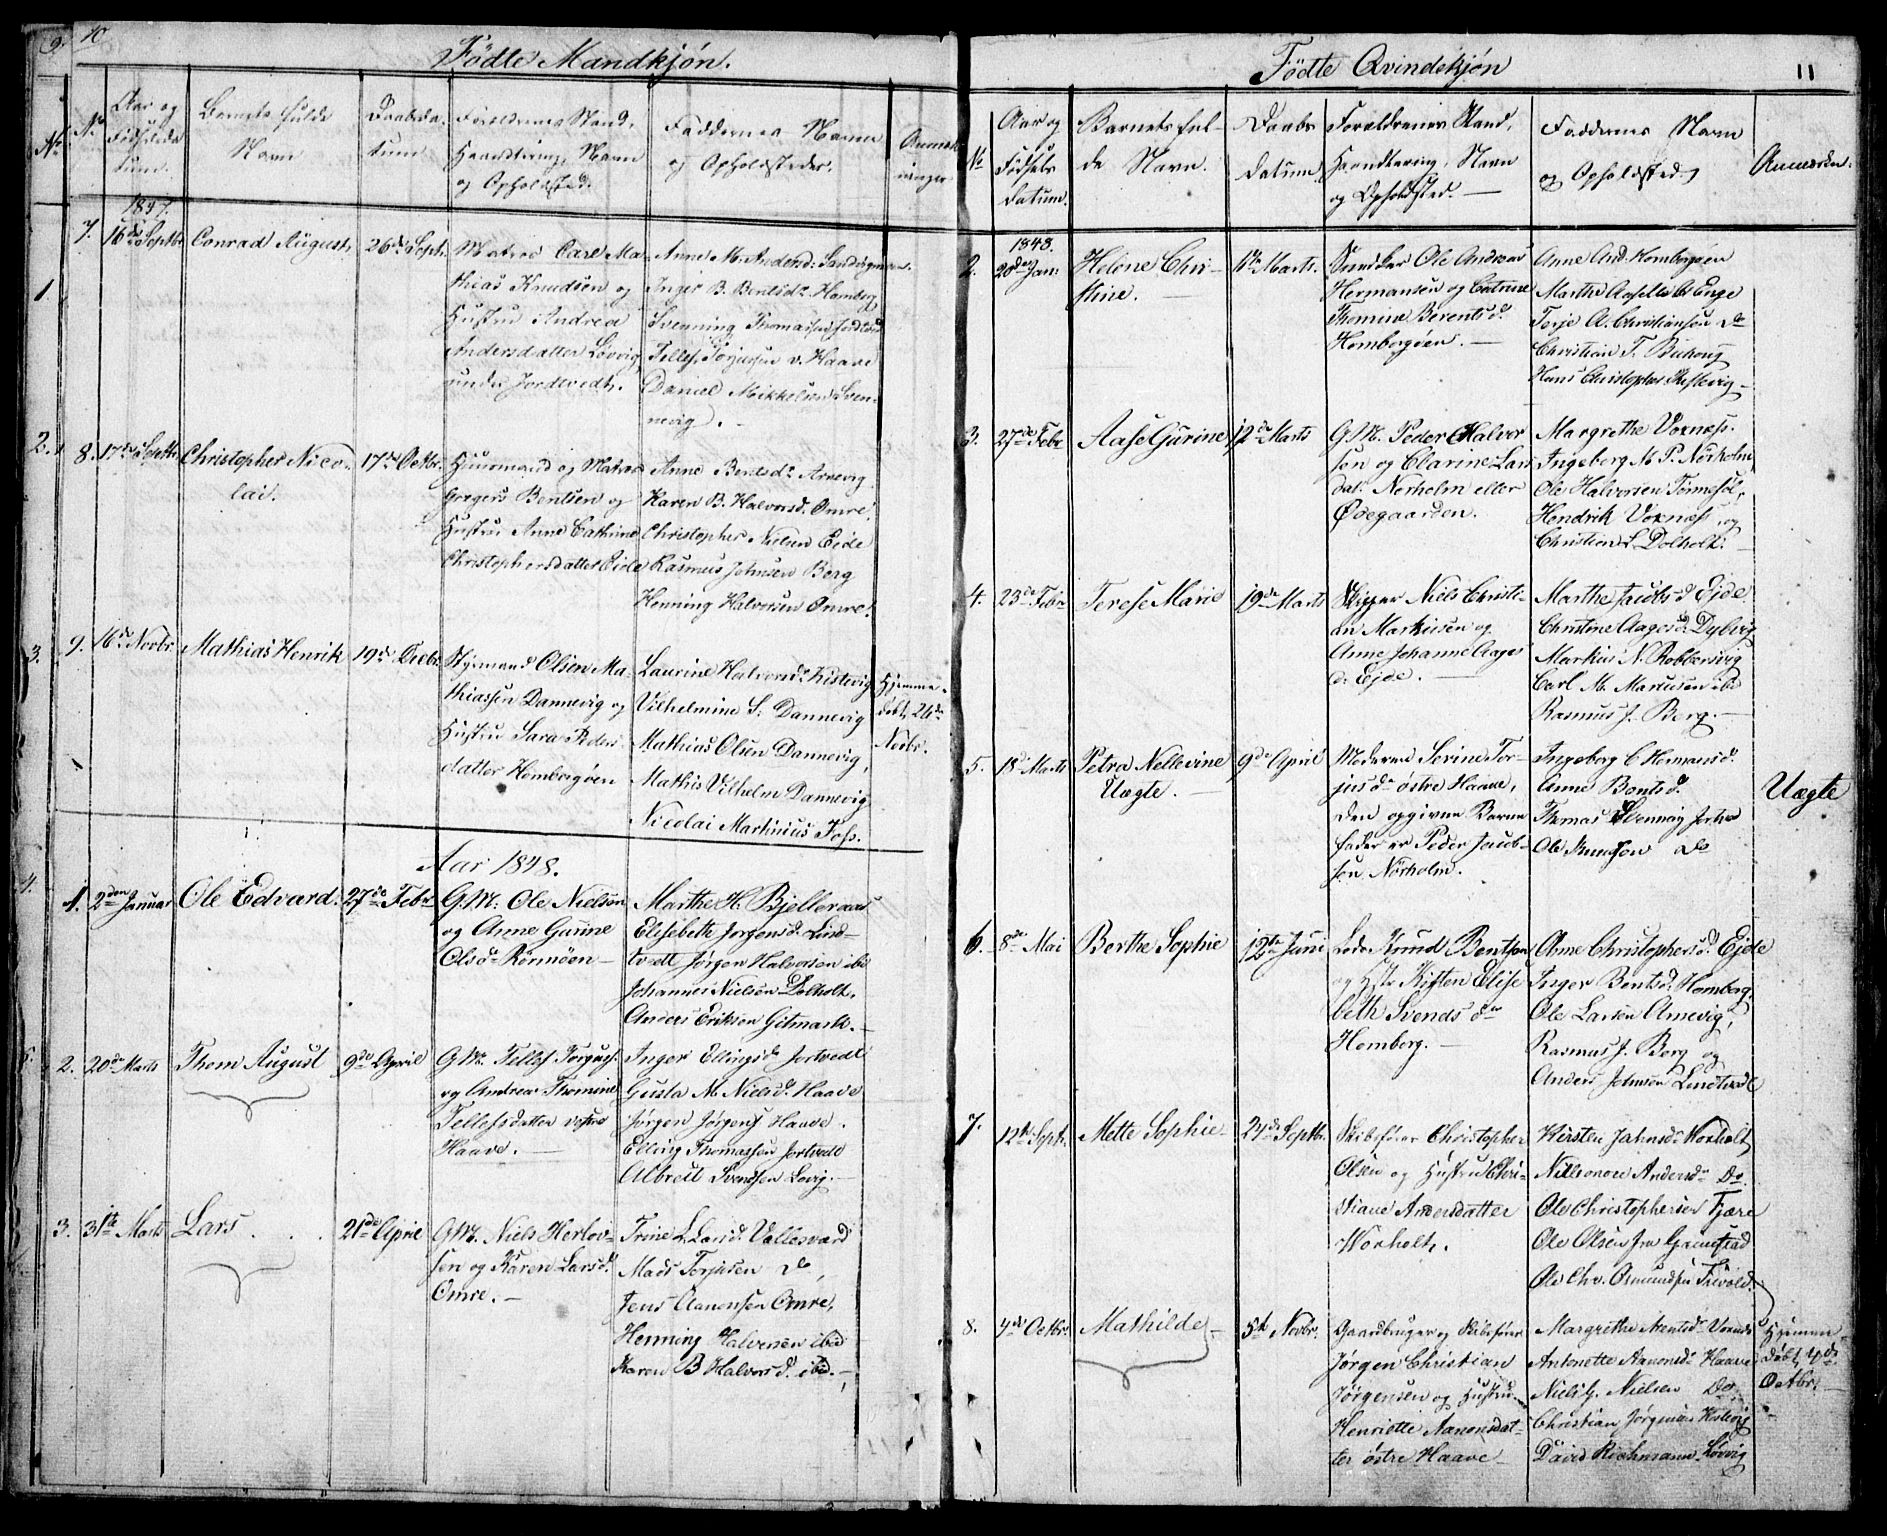 10
Födte Mandkjön.
No
Aar og Födselsdatum.
Barnets fulde Navn
Daabsdatum.
Forældrenes Stand, Haandtering, Navn og Opholdsted.
Faddernes Navn og Opholdsteder.
1847.
7. 16de Septbr
Conrad August,
26de Septr.
Matros Carl Ma-
thias Knudsen og
Hustru Andrea
Andersdatter Løvvig
under Jordtvedt.
Anne M. Andersd:
Inger B. Bentsdr. Homborg
Svenning Thomassen Jordtvedt
Tellef Torjussen v. Haave
Daniel Mikkelsen Sven-
nevig.
8. 17de Septbr.
Christopher Nico-
lai.
17de Octbr.
Huusmand og Matros
Gregers Bentsen og
Hustru Anne Cathrine
Christophersdatter Eide
Anne Bentsdr. Arnevig
Karen B. Halvorsd. Omre.
Christopher Nielsen Eide
Rasmus Johnsen Berg
Henning Halvorsen Omre.
9. 16de Novbr.
Mathias Henrik
19de Decbr.
Styrmand Olsen Ma-
thiassen Dannevig og
Hustru Sara Peders-
datter Homborgöen
Laurine Halvorsdr. Kistevig
Vilhelmine S. Dannevig
Mathias Olsen Dannevig,
Mathis Vilhelm Dannevig
Nicolai Martinius Foss.
Hjemme-
döbt 24de
Novbr.
Aar 1848.
1. 2den Januar
Ole Edvard.
27de Febr.
G.M. Ole Nielsen
og Anne Gurine
Olsdr. Rörmöen
Marthe H. Bjelleraas
Elisebette Jorgensd. Lind-
tvedt Jørgen Halvorsen ibd
Johannes Nielsen Dolholt.
Anders Eriksen Gitmark.
2. 20de Marts
Thom August
9de April
G.M. Tellef Torguss.
og Andrea Thomine
Tellefsdatter vestre
Haave.
Inger Ellingsdr Jortvedt
Gusta M. Nielsd. Haave
Jørgen Jørgens. Haave.
Elling Thomassen Jortvedt
Albrett Svendsen Lovig.
3. 31te Marts
Lars
21de April
G.M. Niels Herlov-
sen og Karen Larsd.
Omre.
Trine L. Larsd. Vallesverd
Mads Torjusen do
Jens Aanonsen Omre,
Henning Halvorsen ibid
Karen B Halvorsd. ibid.
11
Födte Qvindekjön
No
Aar og Födsels datum.
Barnets ful-
de Navn.
Daabs Datum.
Forældrenes Stand, Haandtering, Navn og Opholdsted.
Faddernes Navn og Opholdsted.
Anmærkn.
1848.
2. 20de Jan:
Helene Chri-
stine.
Marts.
Ole Andreas
Hermansen og Catrine
Thomine Berentsd.
Homborgöen.
Anne And. Homborgöen
Marthe Aaselle A Enge
Torje A. Christiansen do
Christian T.
Hans Christopher Kistevig
3. 27de Febr
Aase Gurine
12de Marts
G.M. Peder Halvor
sen og Clarine Lars
dat. Norholm eller
Ødegaarden.
Margrethe Voxnes.
Ingeborg M. P. Nörholm,
Ole Halvorsen Törmefol,
Hendrik Voxnes og
Christian L Dolholt.
4. 23de Febr
Terese Marie
19de Marts
Skipper Niels Christi-
an Markusen og
Anne Johanne Aages
d. Ejde.
Marthe Jacobsd Ejde
Christine Aagesd. Dybvig
Markus N. Robbersvig
Carl M. Markusen ibid
Rasmus J. Berg.
5. 18de Marts
Petra Nellevine
Uægte.
9de April
Moderen Serine Tor-
jusdr. östre Haave,
den opgivne Barne
fader er Peder Jacob-
sen Nörholm.
Ingeborg C Hermansd.
Anne Bentsd.
Thomas Svennvig Jortved
Ole Knudsen do
Uægte
6. 8de Mai
Berthe Sophie
12te Juni
Lods Knud Bentsen
og Hstr Kisten Elise
beth Svendsdr
Homborg.
Ane Christophersd. Ejde
Inger Bentsd. Homborg.
Ole Larsen Arnevig,
Rasmus J. Berg og
Anders Johnsen Lindtvedt
7. 12te Septr.
Mette Sophie
24de Septbr.
Skibsfører Christopher
Olsen og Hustru Chri-
stiane Andersdatter
Woxholt.
Kirsten Jahnsd. Woxholt
Nilleonore Andersdr Do.
Ole Christophersen Fjære
Ole Olsen fra Grimstad
Ole Chr. Osmundsen Trevold.
8. 4de Octbr.
Mathilde
5te Novbr.
Gaardbruger og Skibsfører
Jørgen Christian
Jørgensen og Hustru
Henriette Aanonsdat-
ter östre Haave
Margrethe Arentsdr Voxnes
Antonette Aanonsdr Haave
Niels G. Nielsen Do.
Christian Jørgensen Kistevig
David Rochmann Løvvig
Hjemme-
döbt 4de
Octbr.